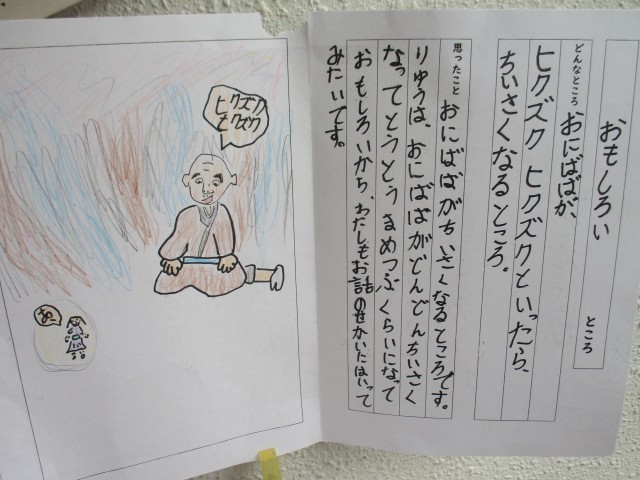 おもしろい
ところ
どんなところ
おにばばが、
ヒクズク ヒクズクといったら、
ちいさくなるところ。
思ったこと
おにばばがちいさくなるところです。
りゆうは、おにばばがどんどんちいさく
なってとうとうまめつぶくらいになって
おもしろいから、わたしもお話のせかいにはいって
みたいです。
ヒクズク
ヒクズク
あー